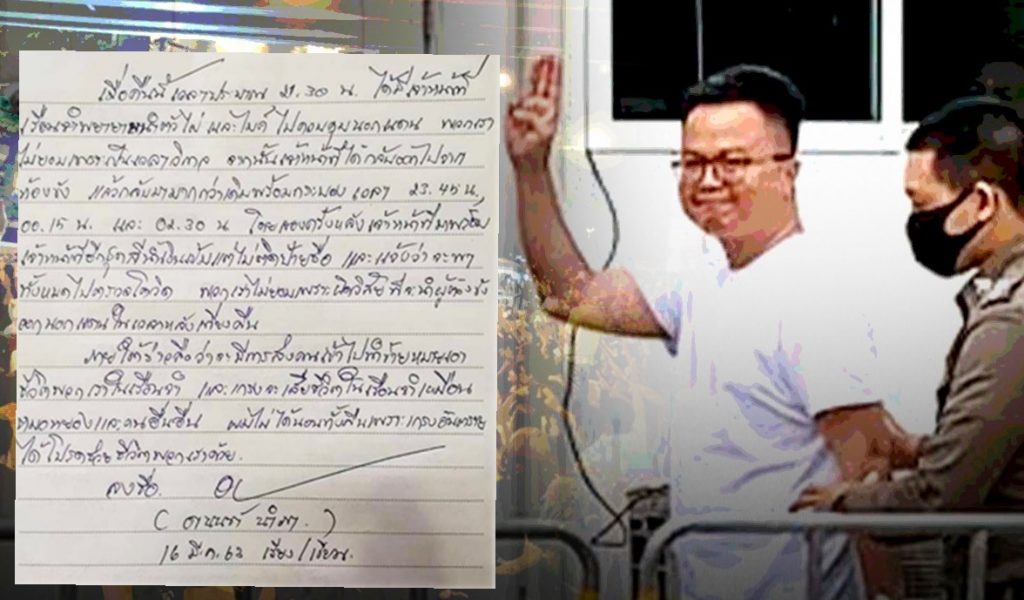 เมื่อคืนนี้ เวลาประมาณ 21.30 น. ได้มีเจ้าหน้าที่
เรือนจำพยายามนำตัวไผ่ และไมค์ ไปควบคุมนอกแดน พวกเรา
ไม่ยอมเพราะเป็นเวลาวิกาล จากนั้นเจ้าหน้าที่ได้กลับออกไปจาก
ห้องขัง แล้วกลับมามากกว่าเดิมพร้อมกระบอง เวลา 23.45 น,
00.15 น. และ 02.30 น โดยสองครั้งหลังเจ้าหน้าที่มาพร้อม
เจ้าหน้าที่อีกชุดสีน้ำเงินเข้มแต่ไม่ติดป้ายชื่อ และแจ้งว่าจะพา
ทั้งหมดไปตรวจโควิด พวกเราไม่ยอมเพราะผิดวิสัยที่จะนำผู้ต้องขัง
ออกนอกแดนในเวลาหลังเที่ยงคืน
ภายใต้ข่าวลือว่าจะมีการส่งคนเข้าไปทำร้ายหมายเอา
ชีวิตพวกเราในเรือนจำ และเกรงจะเสียชีวิตในเรือนจำเหมือน
หมอหยองและคนอื่นอื่น ผมไม่ได้นอนทั้งคืนเพราะเกรงอันตราย
ได้โปรดช่วยชีวิตพวกเราด้วย.
ลงชื่อ.
( อานนท์ นำภา. )
16 มี.ค. 63 เรียง/เขียน.